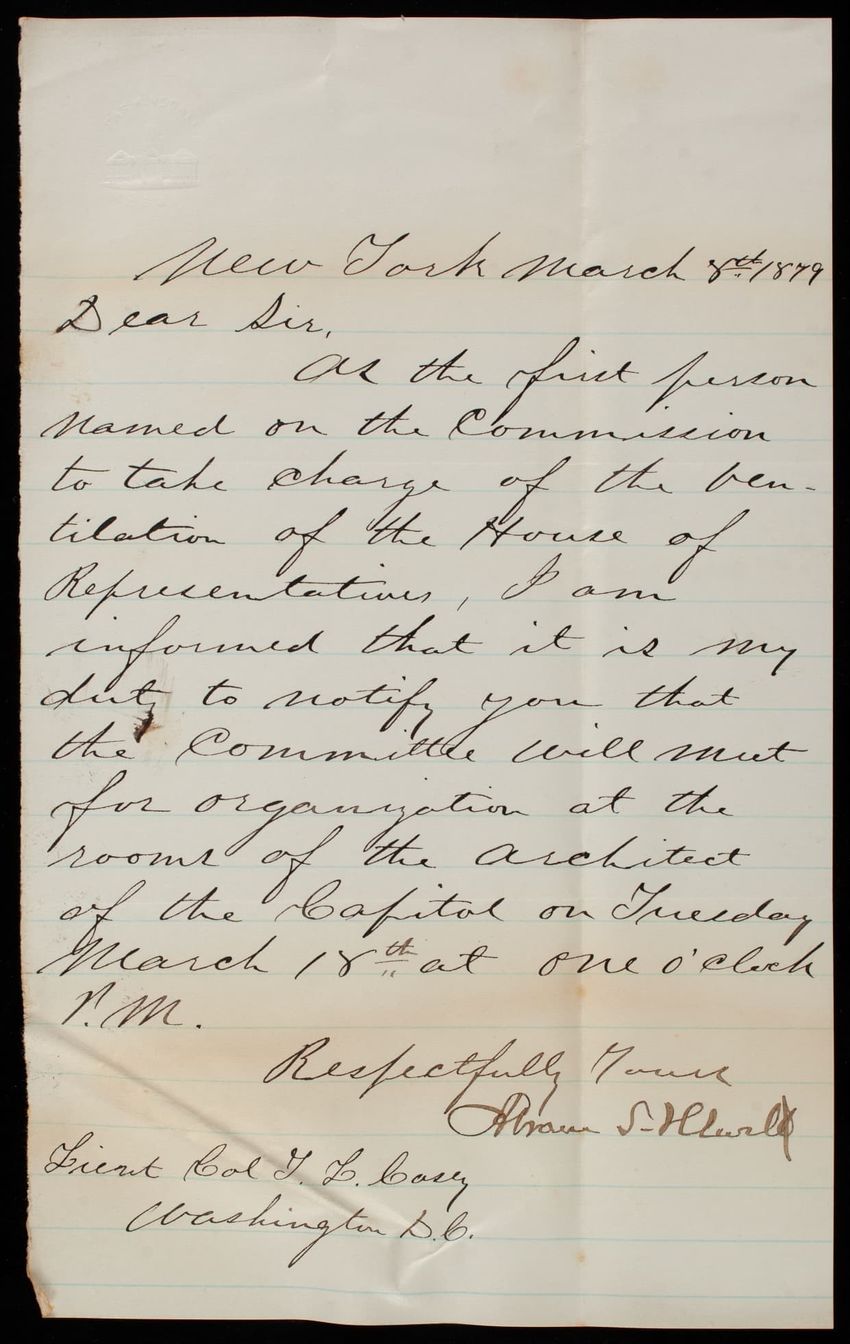 New York March 8th 1879
Dear Sir,
As the first person
named on the Commission
to take charge of the ven-
tilation of the House of
Representatives, I am
informed that it is my
duty to notify you that
the Committee will meet
for organization at the
rooms of the Architect
of the Capitol on Tuesday
March 18th at one o'clock
P.M.
Respectfully Yours
Abram S. Hewitt
Lieut Col T. L. Casey
Washington D.C.